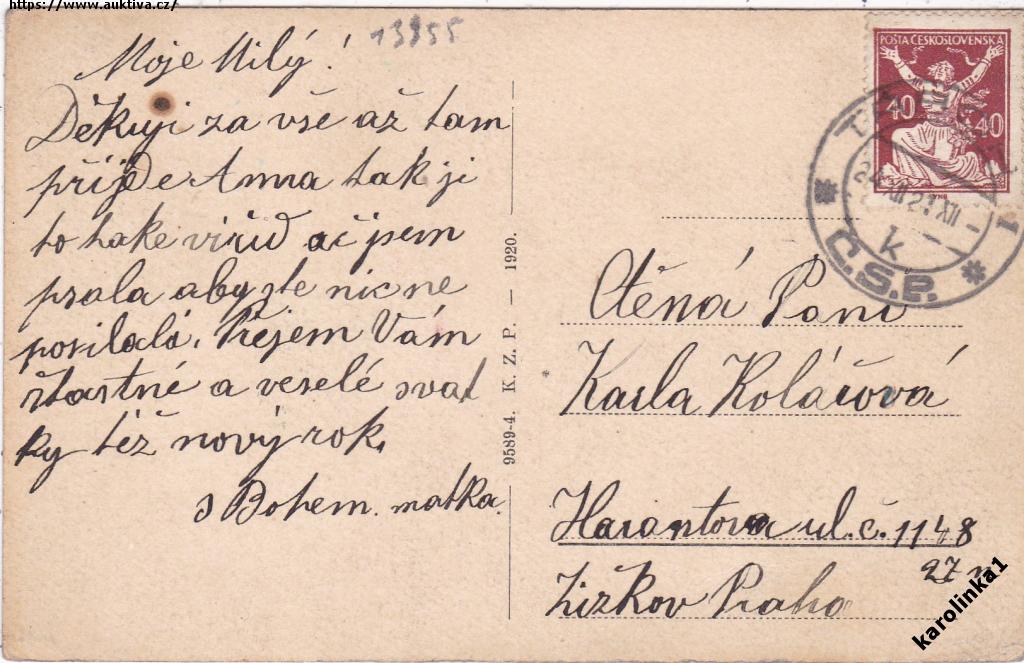 https://www.auktiva.cz/
13855
Moje Milý!
Děkuji za vše až tam
přijde Anna tak ji
to take viřiď ač jsem
psala abyste nic ne
posilala. Přejem Vám
štastné a veselé svat
ky též nový rok.
s Bohem. matka.
9589-4. K. Z. P. — 1920.
POŠTA ČESKOSLOVENSKÁ
40 40
1
XII
k
Č.S.P.
Ctěná Pani
Karla Kolářová
Harantova ul. č. 1148
Žižkov Praha
karolinka1